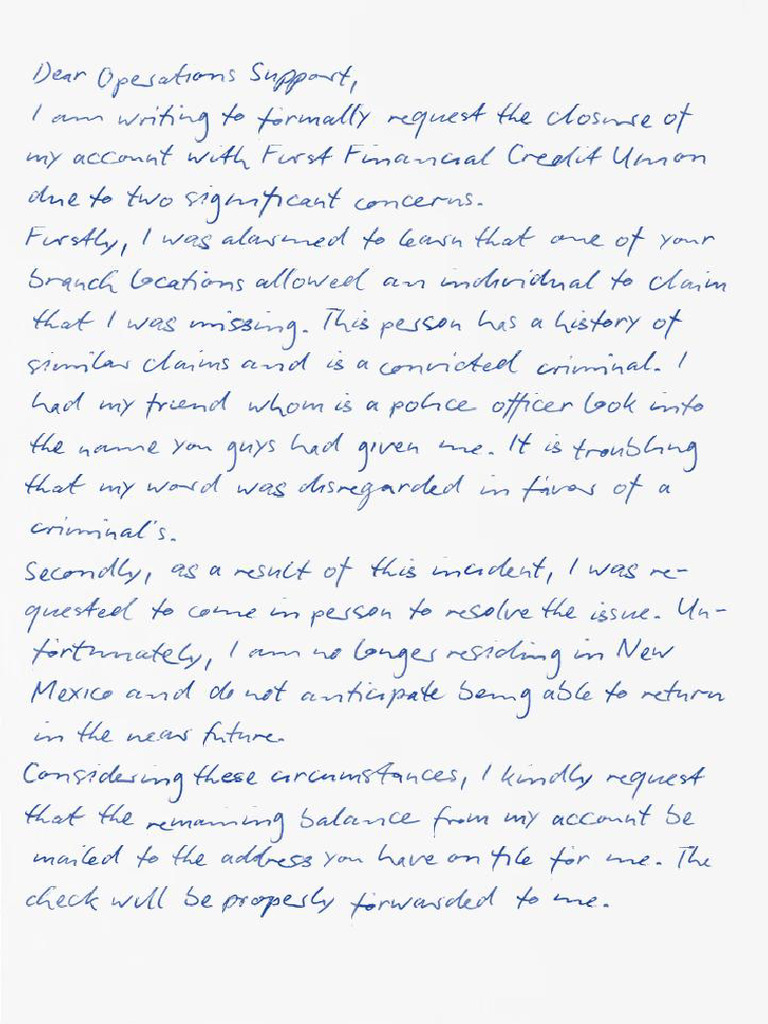 Dear Operations Support,
I am writing to formally request the closure of
my account with First Financial Credit Union
due to two significant concerns.
Firstly, I was alarmed to learn that one of your
branch locations allowed an individual to claim
that I was missing. This person has a history of
similar claims and is a convicted criminal. I
had my friend whom is a police officer look into
the name you guys had given me. It is troubling
that my word was disregarded in favor of a
criminal's.
Secondly, as a result of this incident, I was re-
quested to come in person to resolve the issue. Un-
fortunately, I am no longer residing in New
Mexico and do not anticipate being able to return
in the near future.
Considering these circumstances, I kindly request
that the remaining balance from my account be
mailed to the address you have on file for me. The
check will be properly forwarded to me.